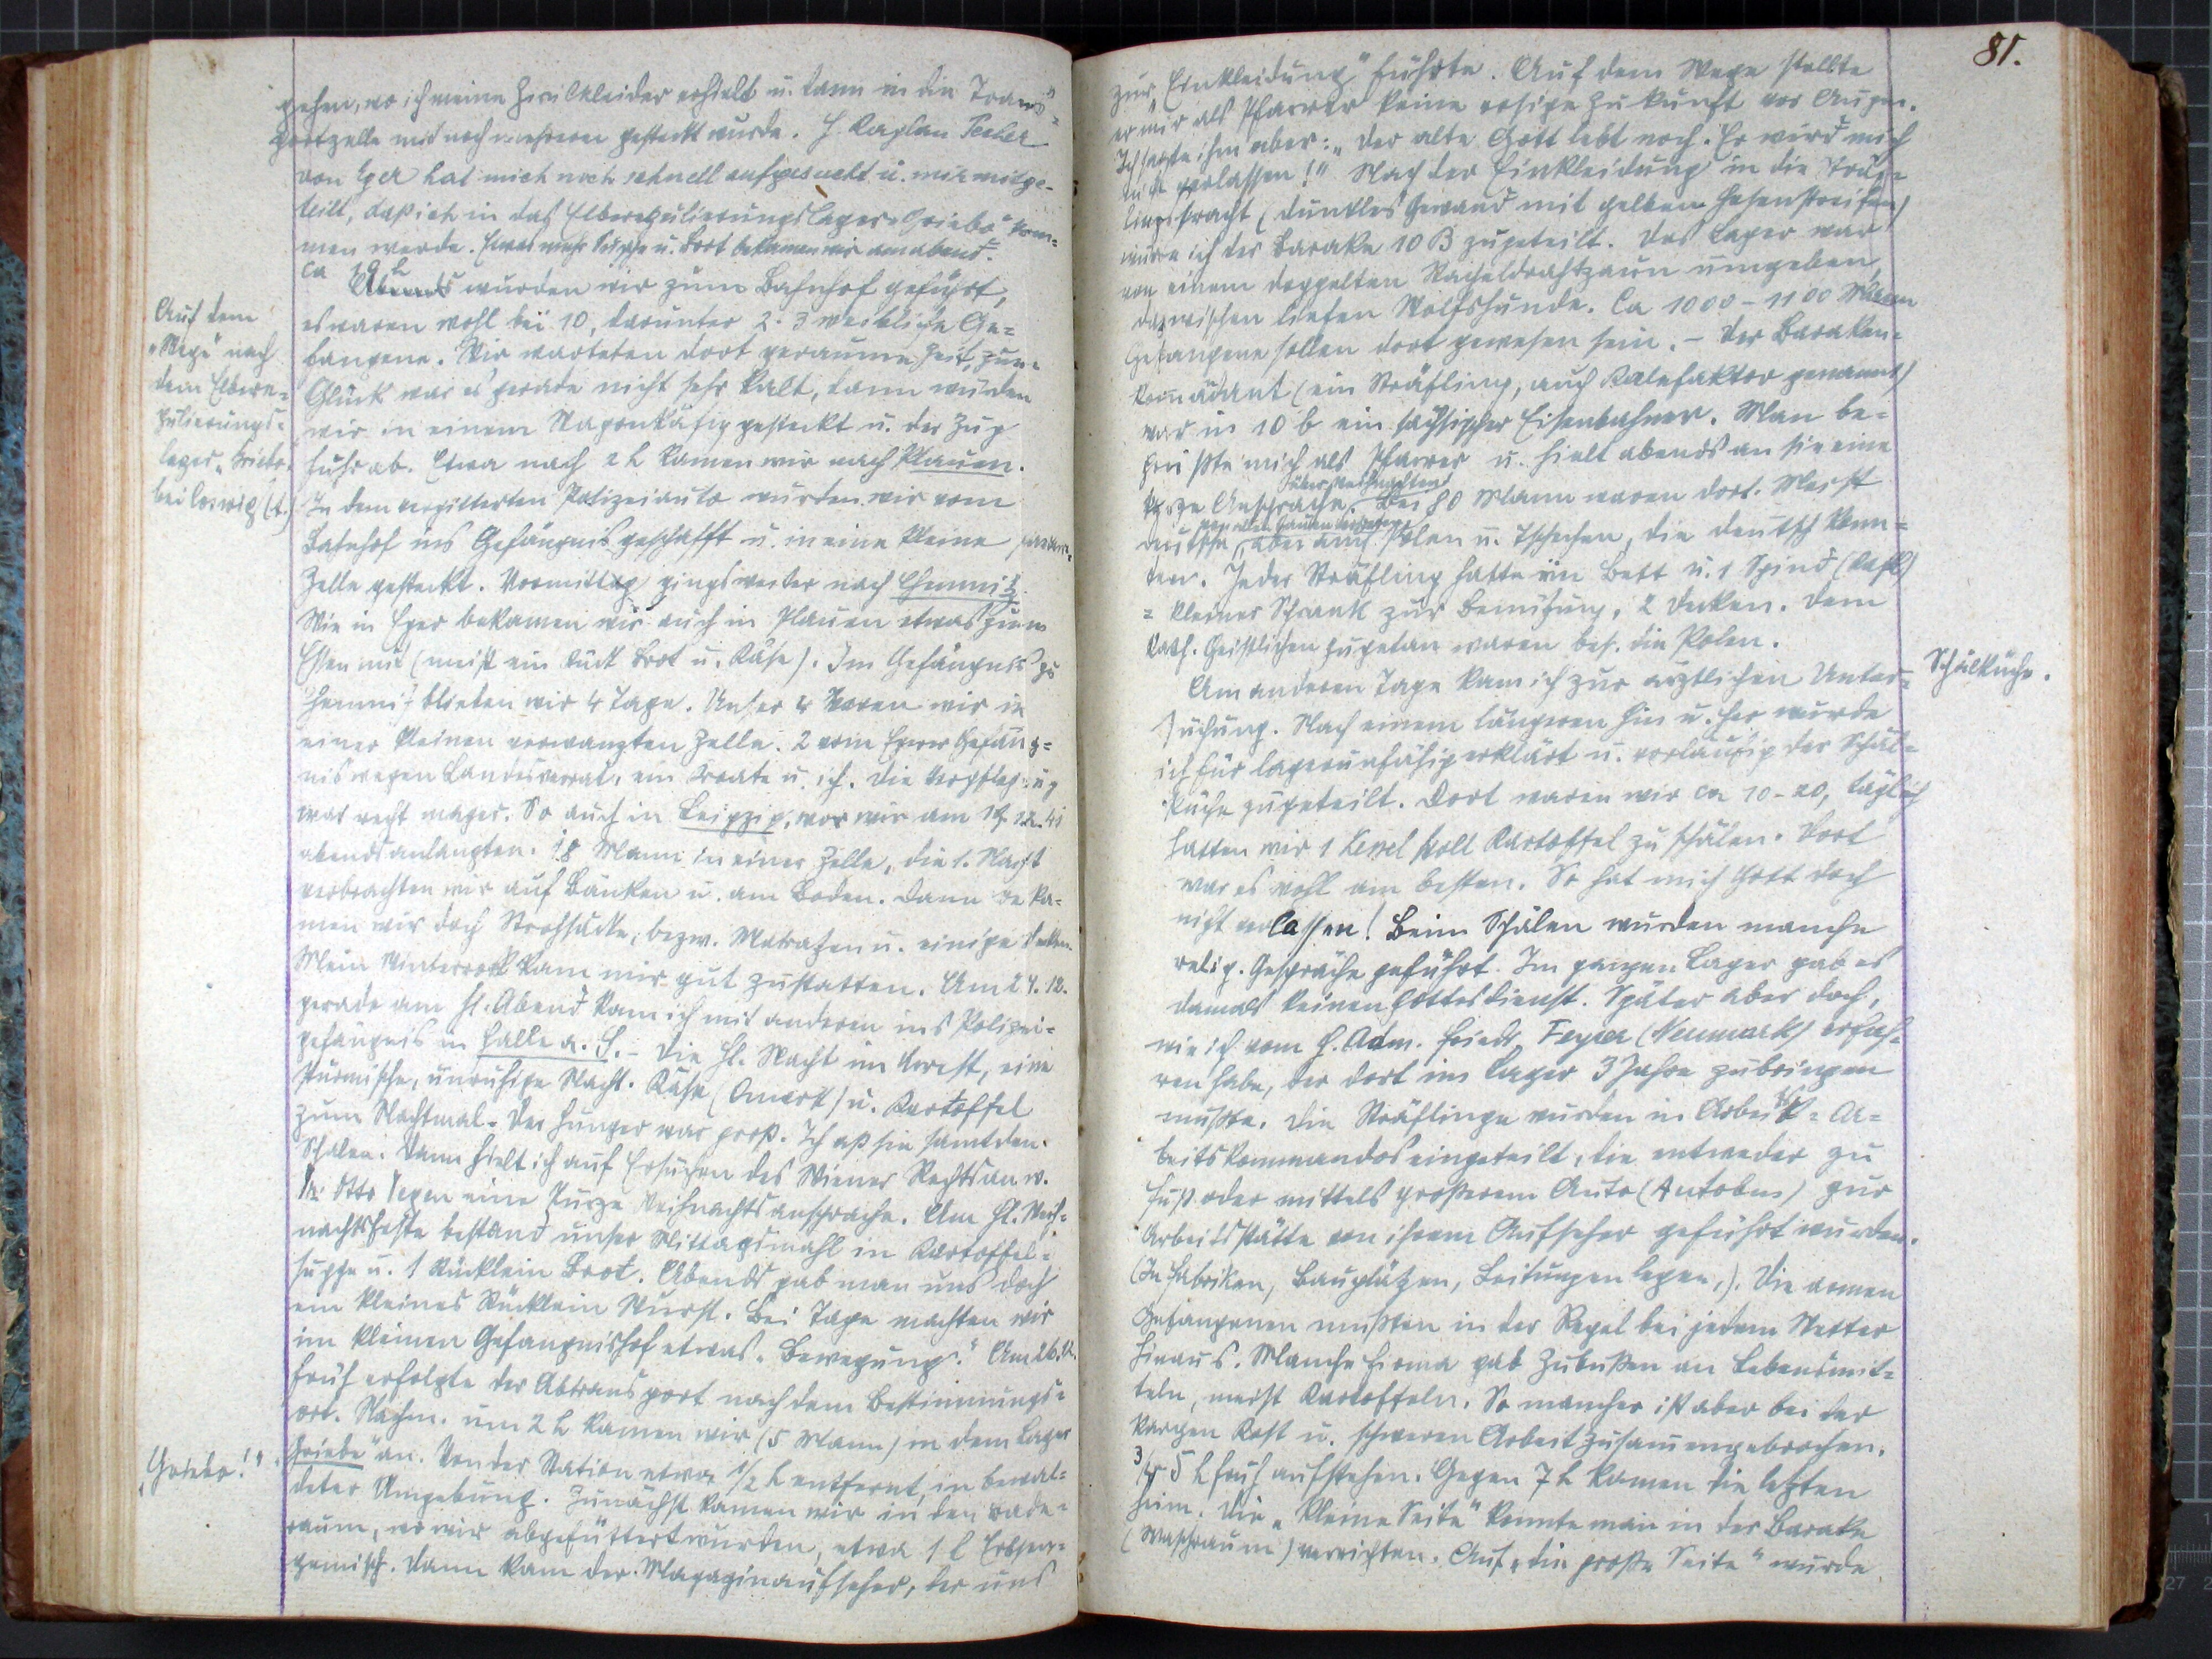 gehen, wo ich meine Zivilkleider erhielt u. dann in die Trans-
portzelle mit noch mehreren gesteckt wurde. H. Kaplan
von Eger hat mich noch schnell aufgesucht u. mir mitge-
teilt, daß ich in das Elberegulierungslager „Griebo" kom-
men werde. Etwas mehr Suppe u. Brot bekamen wir am abend.
ca 19 h
Abends wurden wir zum Bahnhof geführt,
es waren wohl bei 10, darunter 2-3 weibliche Ge-
fangene. Wir warteten dort geraume Zeit, zum
Glück war es gerade nicht sehr kalt, dann wurden
wir in einem Wagenkäfig gesteckt u. der Zug
fuhr ab. Etwa nach 2 h kamen wir nach Plauen.
In dem vergitterten Polizeiauto wurden wir vom
Bahnhof ins Gefängnis geschafft u. in eine kleine
Zelle gesteckt. Vormittag gings weiter nach Chemnitz.
Wie in Eger bekamen wir auch in Plauen etwas zum
Essen mit (meist ein Stück Brot u. Käse). Im Gefängnis zu
Chemnitz blieben wir 4 Tage. Unser 4 waren wir in
einer kleinen verwanzten Zelle. 2 vom Egerer Gefäng-
nis wegen Landesverrat, ein Kroate u. ich. Die Verpflegung
war recht mager. So auch in Leipzig, wo wir am 19.12.41
abends anlangten. 18 Mann in einer Zelle, die 1. Nacht
verbrachten wir auf Bänken u. am Boden. Dann beka-
men wir doch Strohsäcke, bezw. Matratzen u. einige Decken.
Mein Winterrock kam mir gut zustatten. Am 24.12.
gerade am hl. Abend kam ich mit anderen ins Polizei-
gefängnis in Halle a. S. - Die hl. Nacht im Arrest, eine
stürmische, unruhige Nacht. Käse (Quark) u. Kartoffel
zum Nachtmal. Der Hunger war groß. Ich aß sie samt den
Schalen. Dann hielt ich auf Ersuchen des Wiener Rechtsanw.
Dr. Otto eine kurze Weihnachtsansprache. Am hl. Weih-
nachtsfeste bestand unser Mittagsmahl in Kartoffel-
suppe u. 1 Stücklein Brot. Abends gab man uns doch
ein kleines Stücklein Wurst. Bei Tage machten wir
im kleinen Gefängnishof etwas „Bewegung." Am 26.12.
früh erfolgte der Abtransport nach dem Bestimmungs-
ort. Nachm. um 2 h kamen wir (5 Mann) in dem Lager
„Griebo" an. Von der Station etwa 1/2 h entfernt, in bewal-
deter Umgebung. Zunächst kamen wir in den Bade-
raum, wo wir abgefüttert wurden, etwa 1 l Erbsen-
gemisch. Dann kam der Magazinaufseher, der uns
Auf dem
„Wege" nach
dem Elbere-
gulierungs-
lager „Griebo"
bei Coswig (A.)
„Griebo!"
81.
zur „Einkleidung" führte. Auf dem Wege stellte
er mir als Pfarrer keine rosige Zukunft vor Augen.
Ich sagte ihm aber: „Der alte Gott lebt noch. Er wird mich
nicht verlassen!" Nach der Einkleidung in die Sträf-
lingstracht (dunkles Gewand mit gelben Hosenstreifen)
wurde ich der Barake 10 B zugeteilt. Das Lager war
von einem doppelten Stacheldrahtzaun umgeben,
dazwischen liefen Wolfshunde. Ca 1000 - 1100 Mann
Gefangene sollen dort gewesen sein. - Der Baraken-
komädant (ein Sträfling, auch Kalefaktor genannt)
war in 10 b ein sächsischer Eisenbahner. Man be-
grüßte mich als Pfarrer u. hielt abends an sie eine
über Weihnachten
kurze Ansprache. Bei 80 Mann waren dort. Meist
aus allen Gauen
Deutsche, aber auch Polen u. Tschechen, die deutsch konn-
ten. Jeder Sträfling hatte ein Bett u. 1 Spind
= kleiner Schrank zur Benützung, 2 Decken. Dem
kath. Geistlichen zugetan waren bes. die Polen.
Am anderen Tage kam ich zur ärztlichen Unter-
suchung. Nach einem längeren Hin u. Her wurde
ich für lagerunfähig erklärt u. vorläufig der Schäl-
küche zugeteilt. Dort waren wir ca 10-20, täglich
hatten wir 1 Kessel voll Kartoffel zu schälen. Dort
war es wohl am besten. So hat mich Gott doch
nicht verlassen! Beim Schälen wurden manche
relig. Gespräche geführt. Im ganzen Lager gab es
damals keinen Gottesdienst. Später aber doch,
wie ich vom H. Adm. Friedr. Feyrer (Neumark) erfah-
ren habe, der dort im Lager 3 Jahre zubringen
mußte. Die Sträflinge wurden in Ar-
beitskommandos eingeteilt, die entweder zu
Fuß oder mittels großerem Auto (Autobus) zur
Arbeitsstätte von ihrem Aufseher geführt wurden.
(In Fabriken, Bauplätzen, Leitungen legen,). Die armen
Gefangenen mußten in der Regel bei jedem Wetter
hinaus. Manche Firma gab Zubußen an Lebensmit-
teln, meist Kartoffeln. So mancher ist aber bei der
kargen Kost u. schweren Arbeit zusammengebrochen.
3/4 5 h früh aufstehen. Gegen 7 h kamen die letzten
heim. Die „kleine Seite" konnte man in der Barake
(Waschraum) verrichten. Auf „die große Seite" wurde
Schälküche.